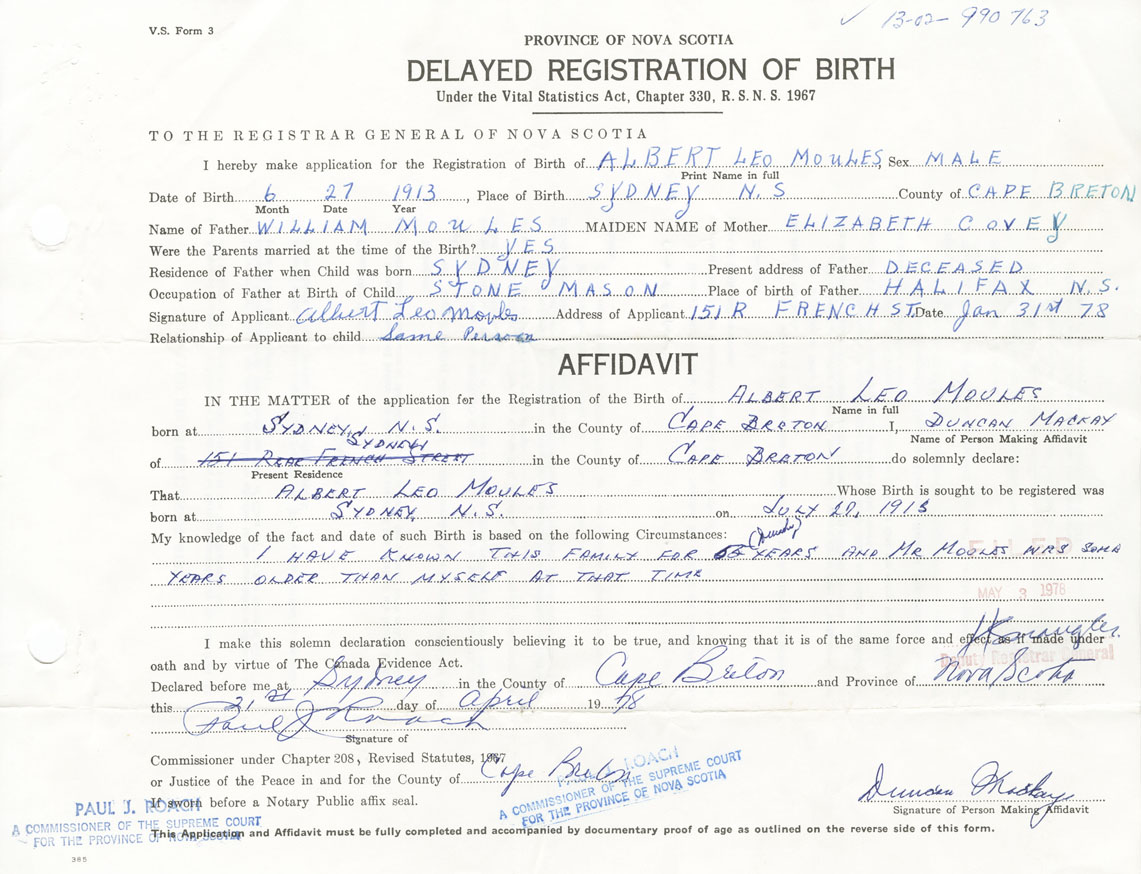 ✓ 13-02-990763
V.S. Form 3
PROVINCE OF NOVA SCOTIA
DELAYED REGISTRATION OF BIRTH
Under the Vital Statistics Act, Chapter 330, R.S.N.S. 1967
TO THE REGISTRAR GENERAL OF NOVA SCOTIA
I hereby make application for the Registration of Birth of ALBERT LEO MOULES, Sex MALE
Print Name in full
Date of Birth 6 27 1913, Place of Birth SYDNEY N.S County of CAPE BRETON
Month Date Year
Name of Father WILLIAM MOULES MAIDEN NAME of Mother ELIZABETH COVEY
Were the Parents married at the time of the Birth? YES
Residence of Father when Child was born SYDNEY Present address of Father DECEASED
Occupation of Father at Birth of Child STONE MASON Place of birth of Father HALIFAX N.S.
Signature of Applicant Albert Leo Moules Address of Applicant 151 R FRENCH ST. Date Jan 31st 78
Relationship of Applicant to child Same Person
AFFIDAVIT
IN THE MATTER of the application for the Registration of the Birth of ALBERT LEO MOULES
Name in full
born at SYDNEY, N.S. in the County of CAPE BRETON I, DUNCAN MACKAY
Name of Person Making Affidavit
SYDNEY
of 151 REAR FRENCH STREET in the County of CAPE BRETON do solemnly declare:
Present Residence
That ALBERT LEO MOULES Whose Birth is sought to be registered was
born at SYDNEY, N.S. on JULY 27, 1913
My knowledge of the fact and date of such Birth is based on the following Circumstances:
I HAVE KNOWN THIS FAMILY FOR YEARS AND MR MOULES WAS SOME
YEARS OLDER THAN MYSELF AT THAT TIME
FILED
MAY 3 1978
I make this solemn declaration conscientiously believing it to be true, and knowing that it is of the same force and effect as if made under
oath and by virtue of The Canada Evidence Act.
Deputy Registrar General
Declared before me at Sydney in the County of Cape Breton and Province of Nova Scotia
this 21st day of April 1978
Paul J Roach
Signature of
Commissioner under Chapter 208, Revised Statutes, 1967
or Justice of the Peace in and for the County of Cape Breton
If sworn before a Notary Public affix seal.
PAUL J. ROACH
A COMMISSIONER OF THE SUPREME COURT
FOR THE PROVINCE OF NOVA SCOTIA
J. ROACH
A COMMISSIONER OF THE SUPREME COURT
FOR THE PROVINCE OF NOVA SCOTIA
Duncan Mackay
Signature of Person Making Affidavit
This Application and Affidavit must be fully completed and accompanied by documentary proof of age as outlined on the reverse side of this form.
365